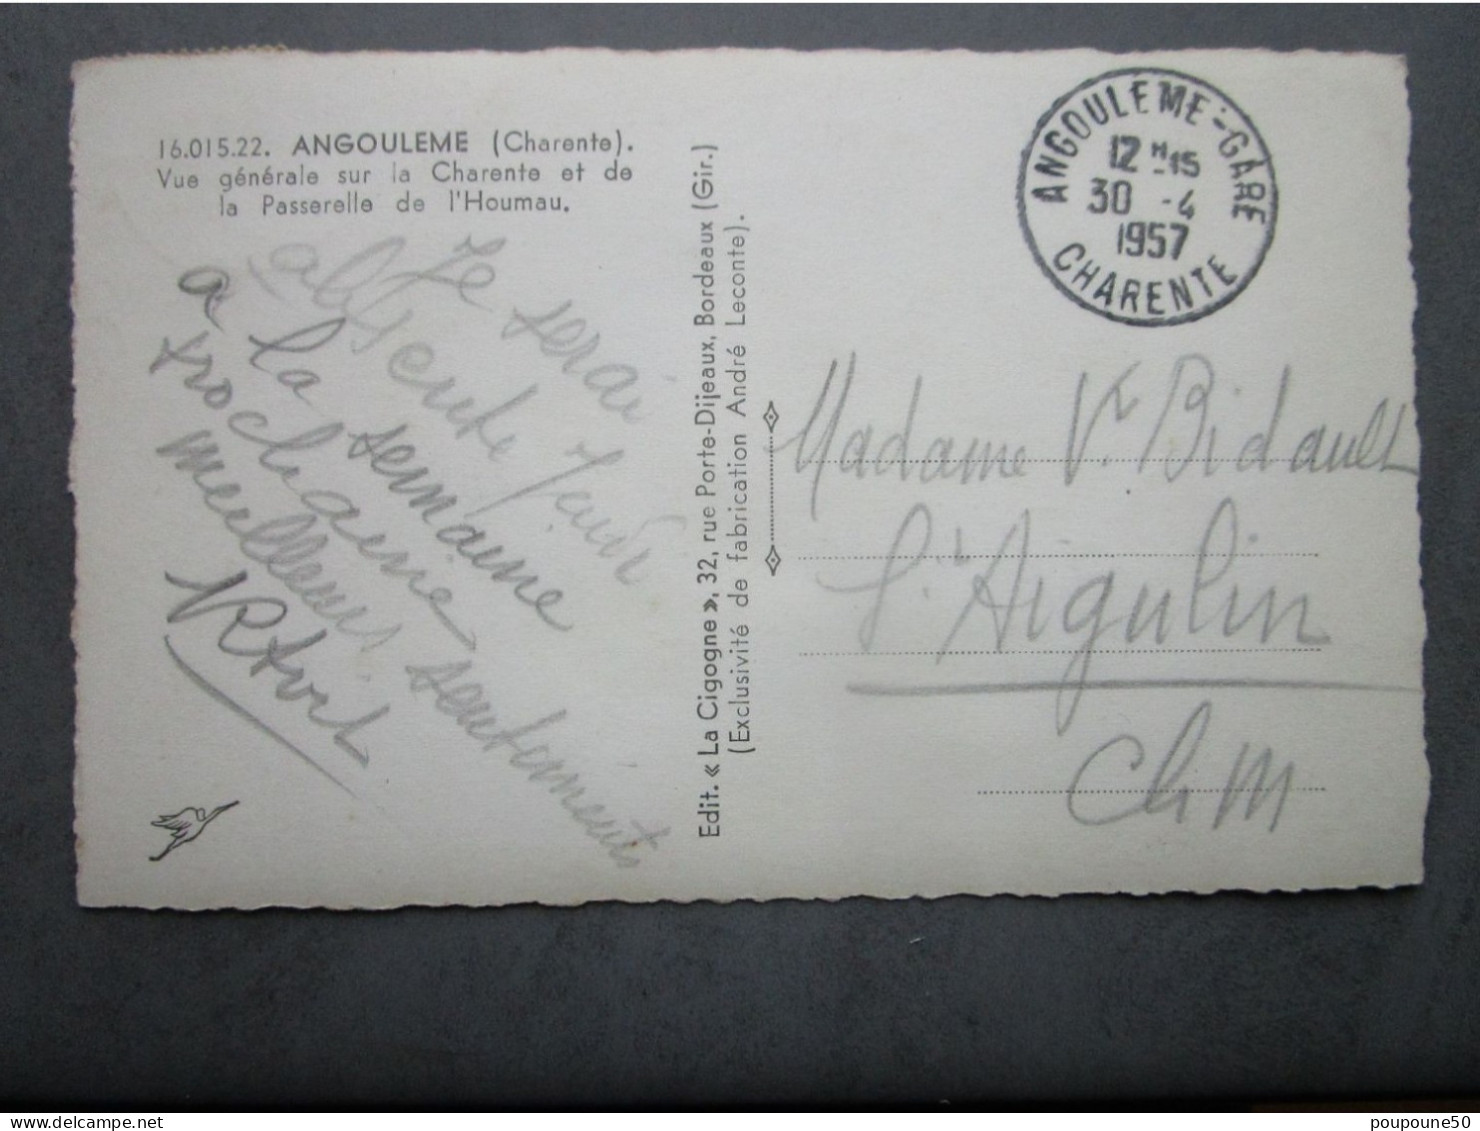 16.015.22. ANGOULEME (Charente).
Vue générale sur la Charente et de
la Passerelle de l'Houmau.
Je serai
absente Jeudi
a la semaine
prochaine
meilleurs sentiments
Edit. « La Cigogne », 32, rue Porte-Dijeaux, Bordeaux (Gir.)
(Exclusivité de fabrication André Leconte).
ANGOULEME-GARE
12 H 15
30 - 4
1957
CHARENTE
Madame Vve Bidault
l'Aigulin
Ch M
poupoune50